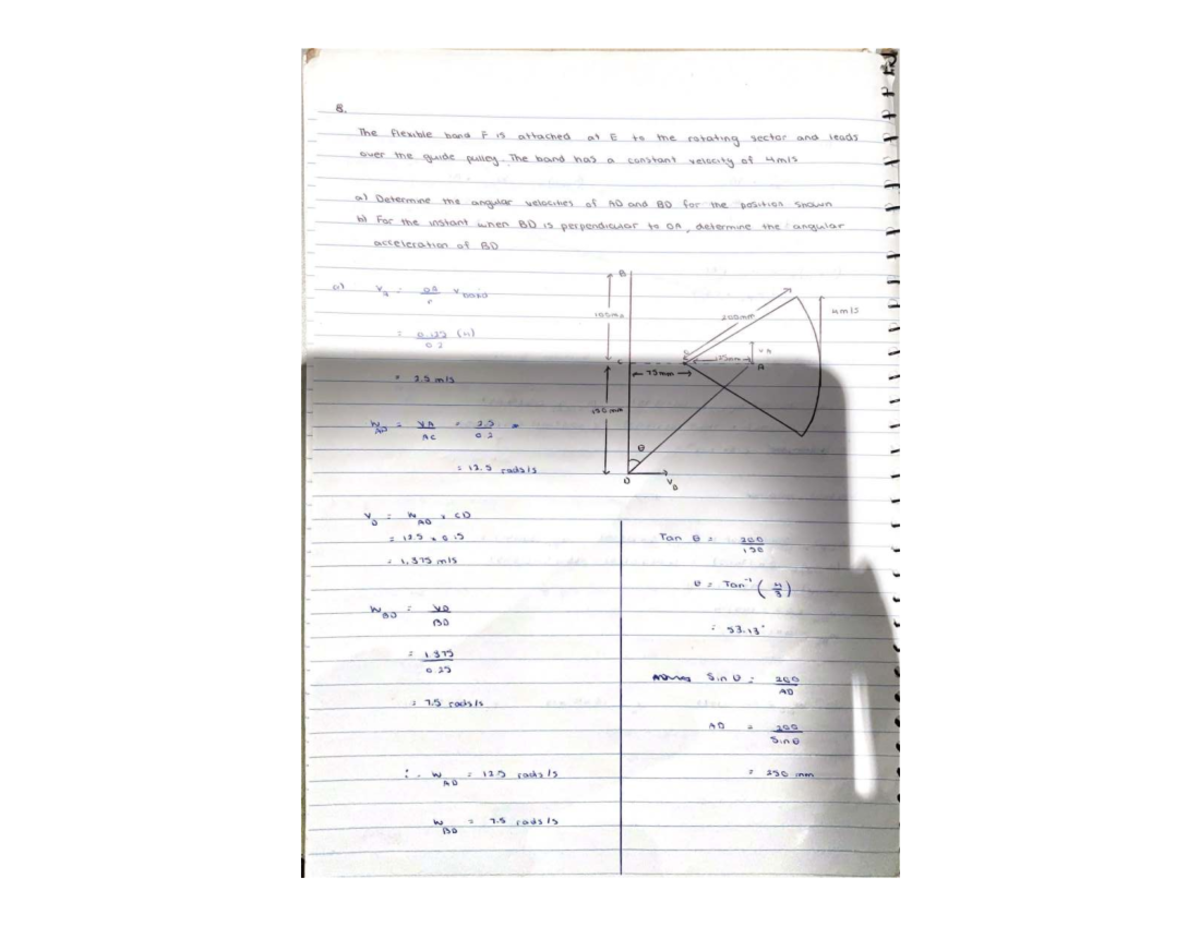 8.
The flexible band F is attached at E to the rotating sector and leads
over the guide pulley. The band has a constant velocity of 4m/s
a) Determine the angular velocities of AD and BD for the position shown
b) For the instant when BD is perpendicular to OA, determine the angular
acceleration of BD
a) V = OA V BAND
r
= 0.125 (4)
0.2
= 2.5 m/s
W AD = VA = 2.5
AC 0.2
= 12.5 rads/s
V D = W AD × CD
= 12.5 × 0.15
= 1.875 m/s
W BD = VD
BD
= 1.875
0.25
= 7.5 rads/s
∴ W AD = 12.5 rads/s
W BD = 7.5 rads/s
B
100mm
200mm
4m/s
C
125mm
VA
A
75mm
150mm
θ
D
V D
Tan θ = 200
150
θ = Tan⁻¹ (4/3)
= 53.13°
Sin θ = 200
AD
AD = 200
Sin θ
= 250 mm